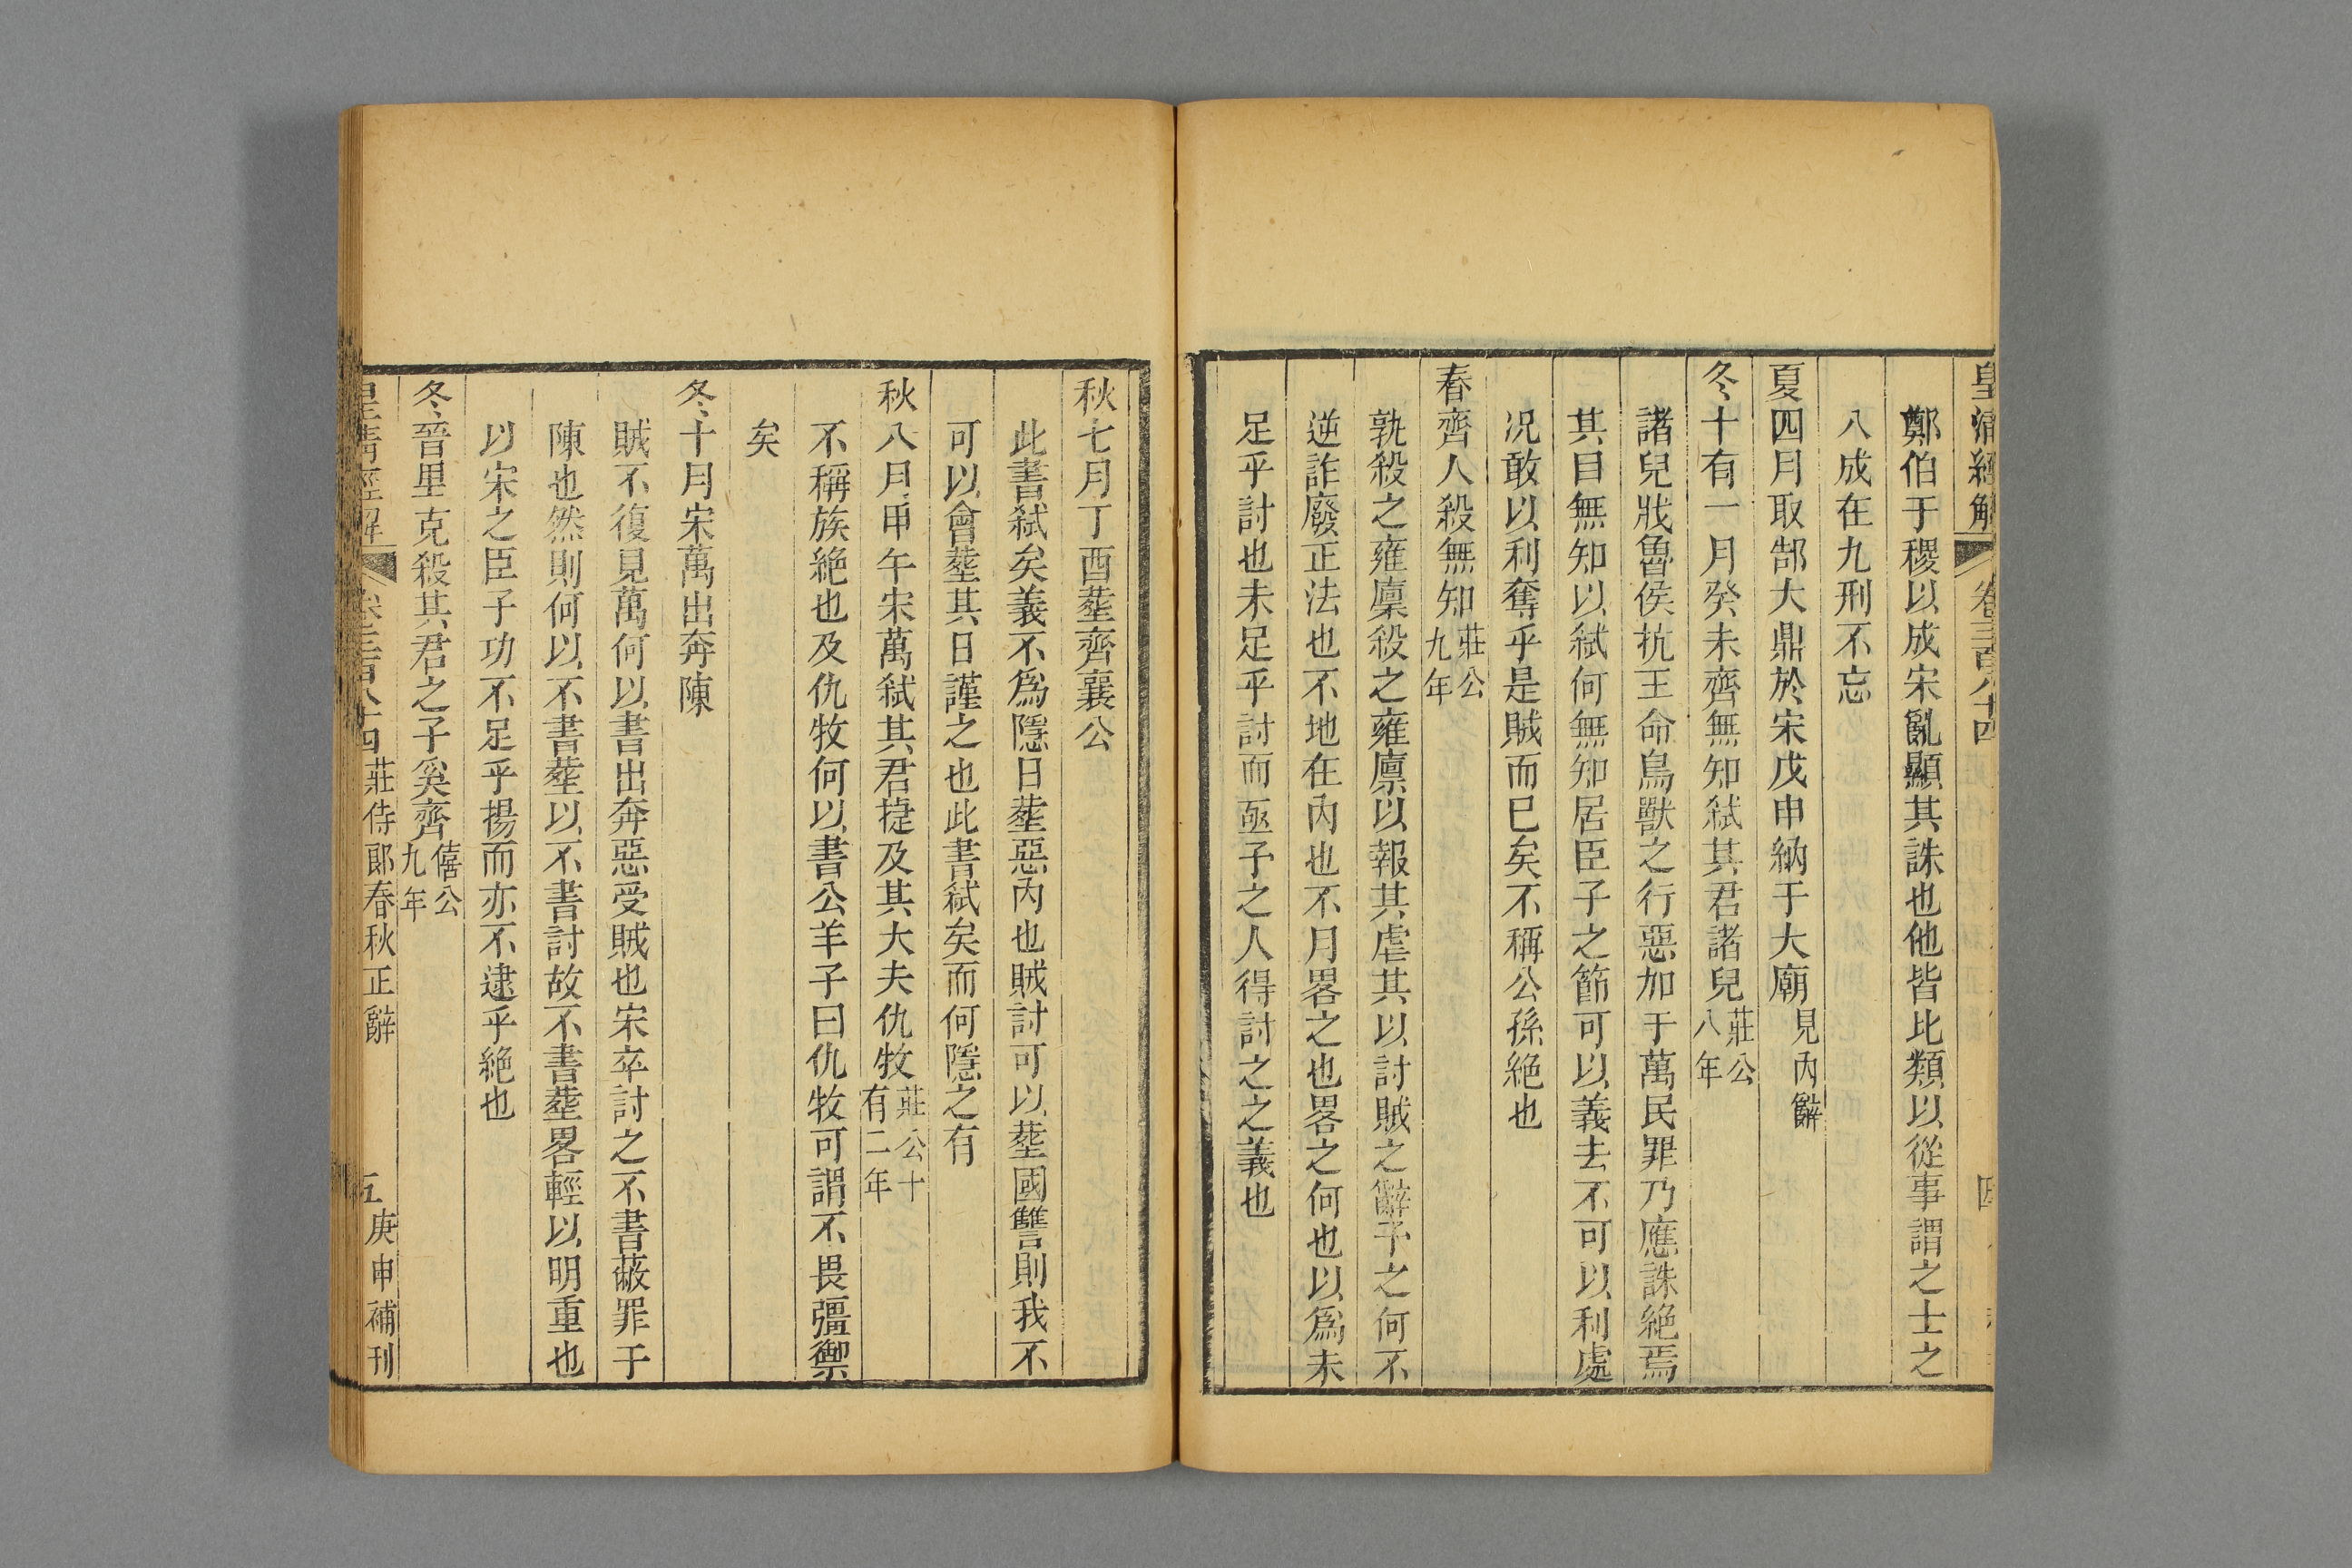 皇清經解 卷三百八十四 四
鄭伯于稷以成宋亂顯其誅也他皆比類以從事謂之士之
八成在九刑不忘
夏四月取郜大鼎於宋戊申納于大廟見內辭
冬十有一月癸未齊無知弒其君諸兒莊公八年
諸兒戕魯侯抗王命鳥獸之行惡加于萬民罪乃應誅絶焉
其目無知以弒何無知居臣子之節可以義去不可以利處
況敢以利奪乎是賊而巳矣不稱公孫絶也
春齊人殺無知莊公九年
孰殺之雍廩殺之雍廩以報其虐其以討賊之辭予之何不
逆詐廢正法也不地在內也不月畧之也畧之何也以爲未
足乎討也未足乎討而亟予之人得討之之義也
秋七月丁酉塟齊襄公
此書弒矣義不爲隱日塟惡內也賊討可以塟國讐則我不
可以會塟其日謹之也此書弒矣而何隱之有
秋八月甲午宋萬弒其君捷及其大夫仇牧莊公十有二年
不稱族絶也及仇牧何以書公羊子曰仇牧可謂不畏彊禦
矣
冬十月宋萬出奔陳
賊不復見萬何以書出奔惡受賊也宋卒討之不書蔽罪于
陳也然則何以不書塟以不書討故不書塟畧輕以明重也
以宋之臣子功不足乎揚而亦不逮乎絶也
冬晉里克殺其君之子奚齊僖公九年
皇清經解 卷三百八十四 莊侍郎春秋正辭 五 庚申補刊